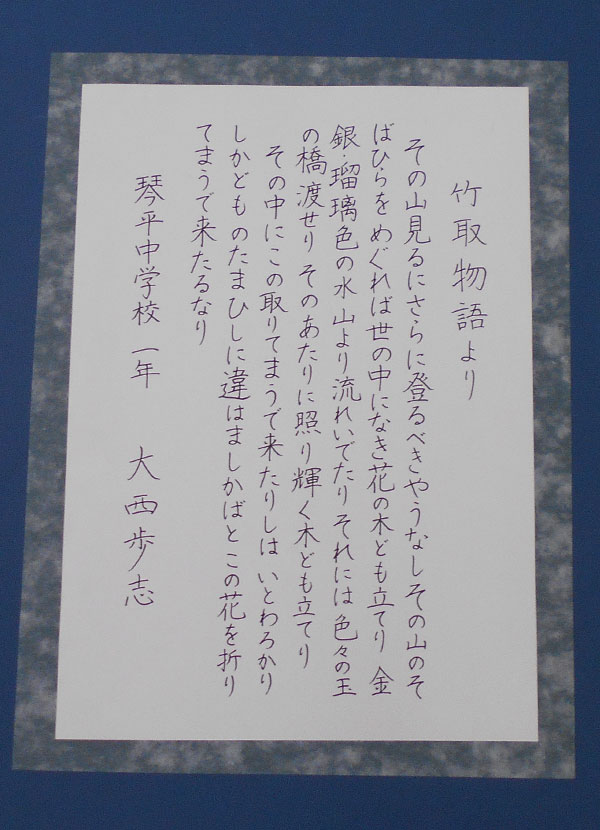 竹取物語より
その山見るにさらに登るべきやうなしその山のそ
ばひらをめぐれば世の中になき花の木ども立てり 金
銀・瑠璃色の水山より流れいでたり それには色々の玉
の橋渡せり そのあたりに照り輝く木ども立てり
その中にこの取りてまうで来たりしは いとわろかり
しかどものたまひしに違はましかばと この花を折り
てまうで来たるなり
琴平中学校 一年 大西歩志